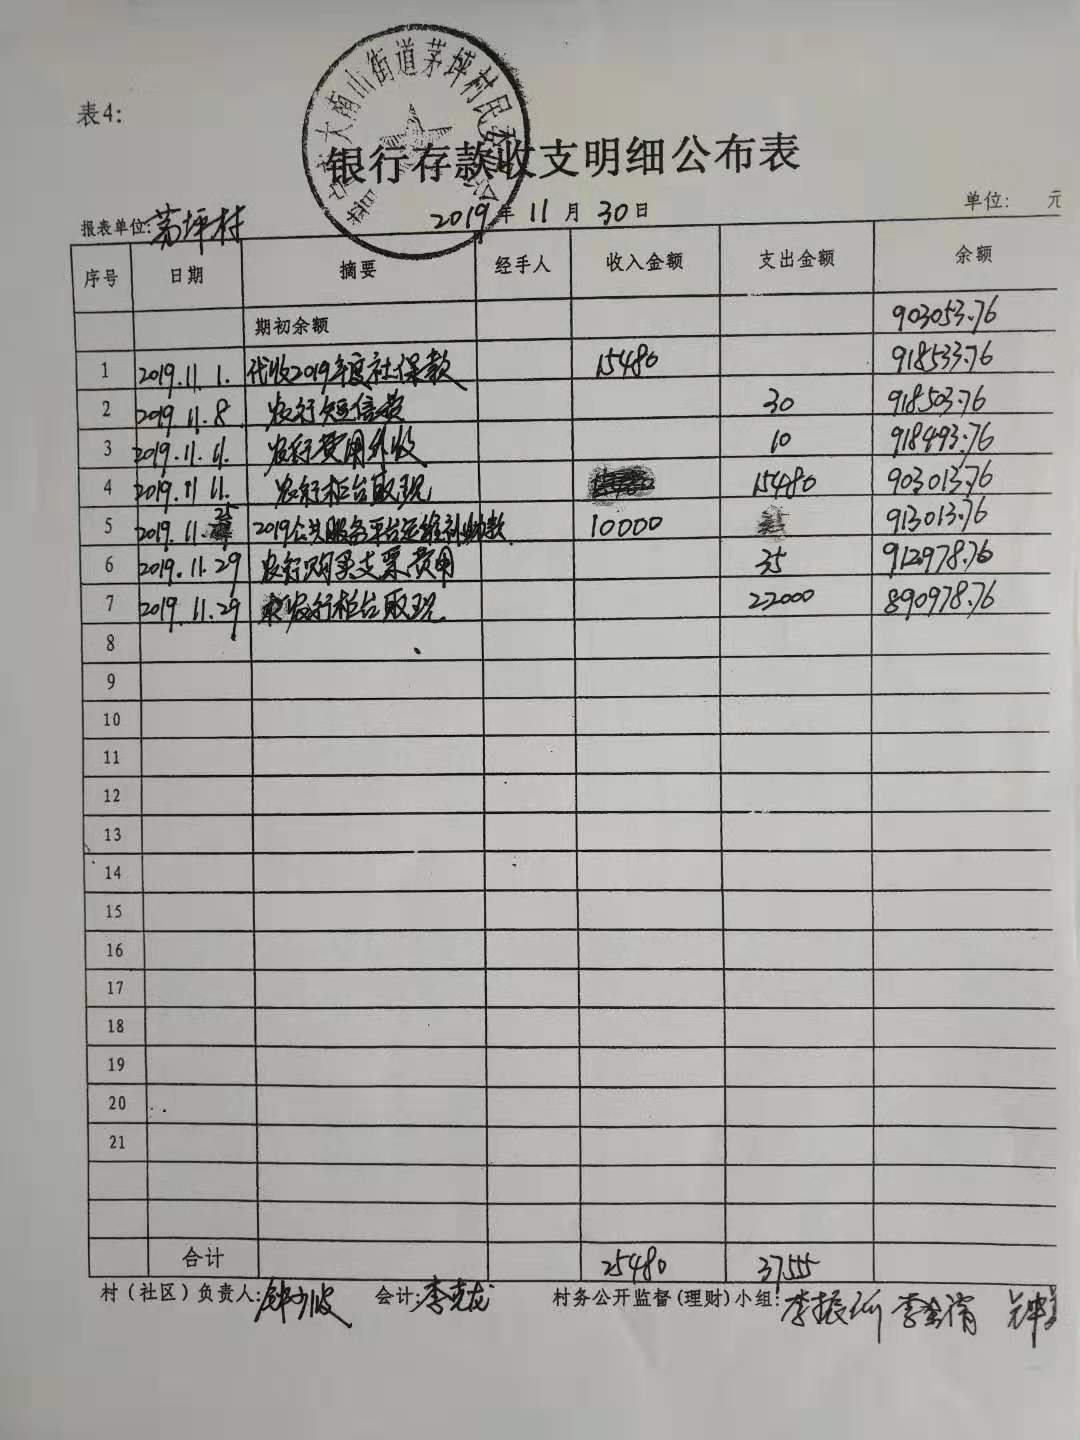 表4:
大南山街道茅坪村民委
银行存款收支明细公布表
报表单位:茅坪村 2019年11月30日 单位: 元
序号 日期 摘要 经手人 收入金额 支出金额 余额
期初余额 903053.76
1 2019.11.1. 代收2019年度社保款 15480 918533.76
2 2019.11.8. 农行短信费 30 918503.76
3 2019.11.11. 农行费用外收 10 918493.76
4 2019.11.11. 农行柜台取现 15480 903013.76
5 2019.11.25 2019公共服务平台运维补助款 10000 913013.76
6 2019.11.29 农行购买支票费用 35 912978.76
7 2019.11.29 农行柜台取现 22000 890978.76
8
9
10
11
12
13
14
15
16
17
18
19
20
21
合计 25480 37555
村(社区)负责人: 会计:李克龙 村务公开监督(理财)小组:李振